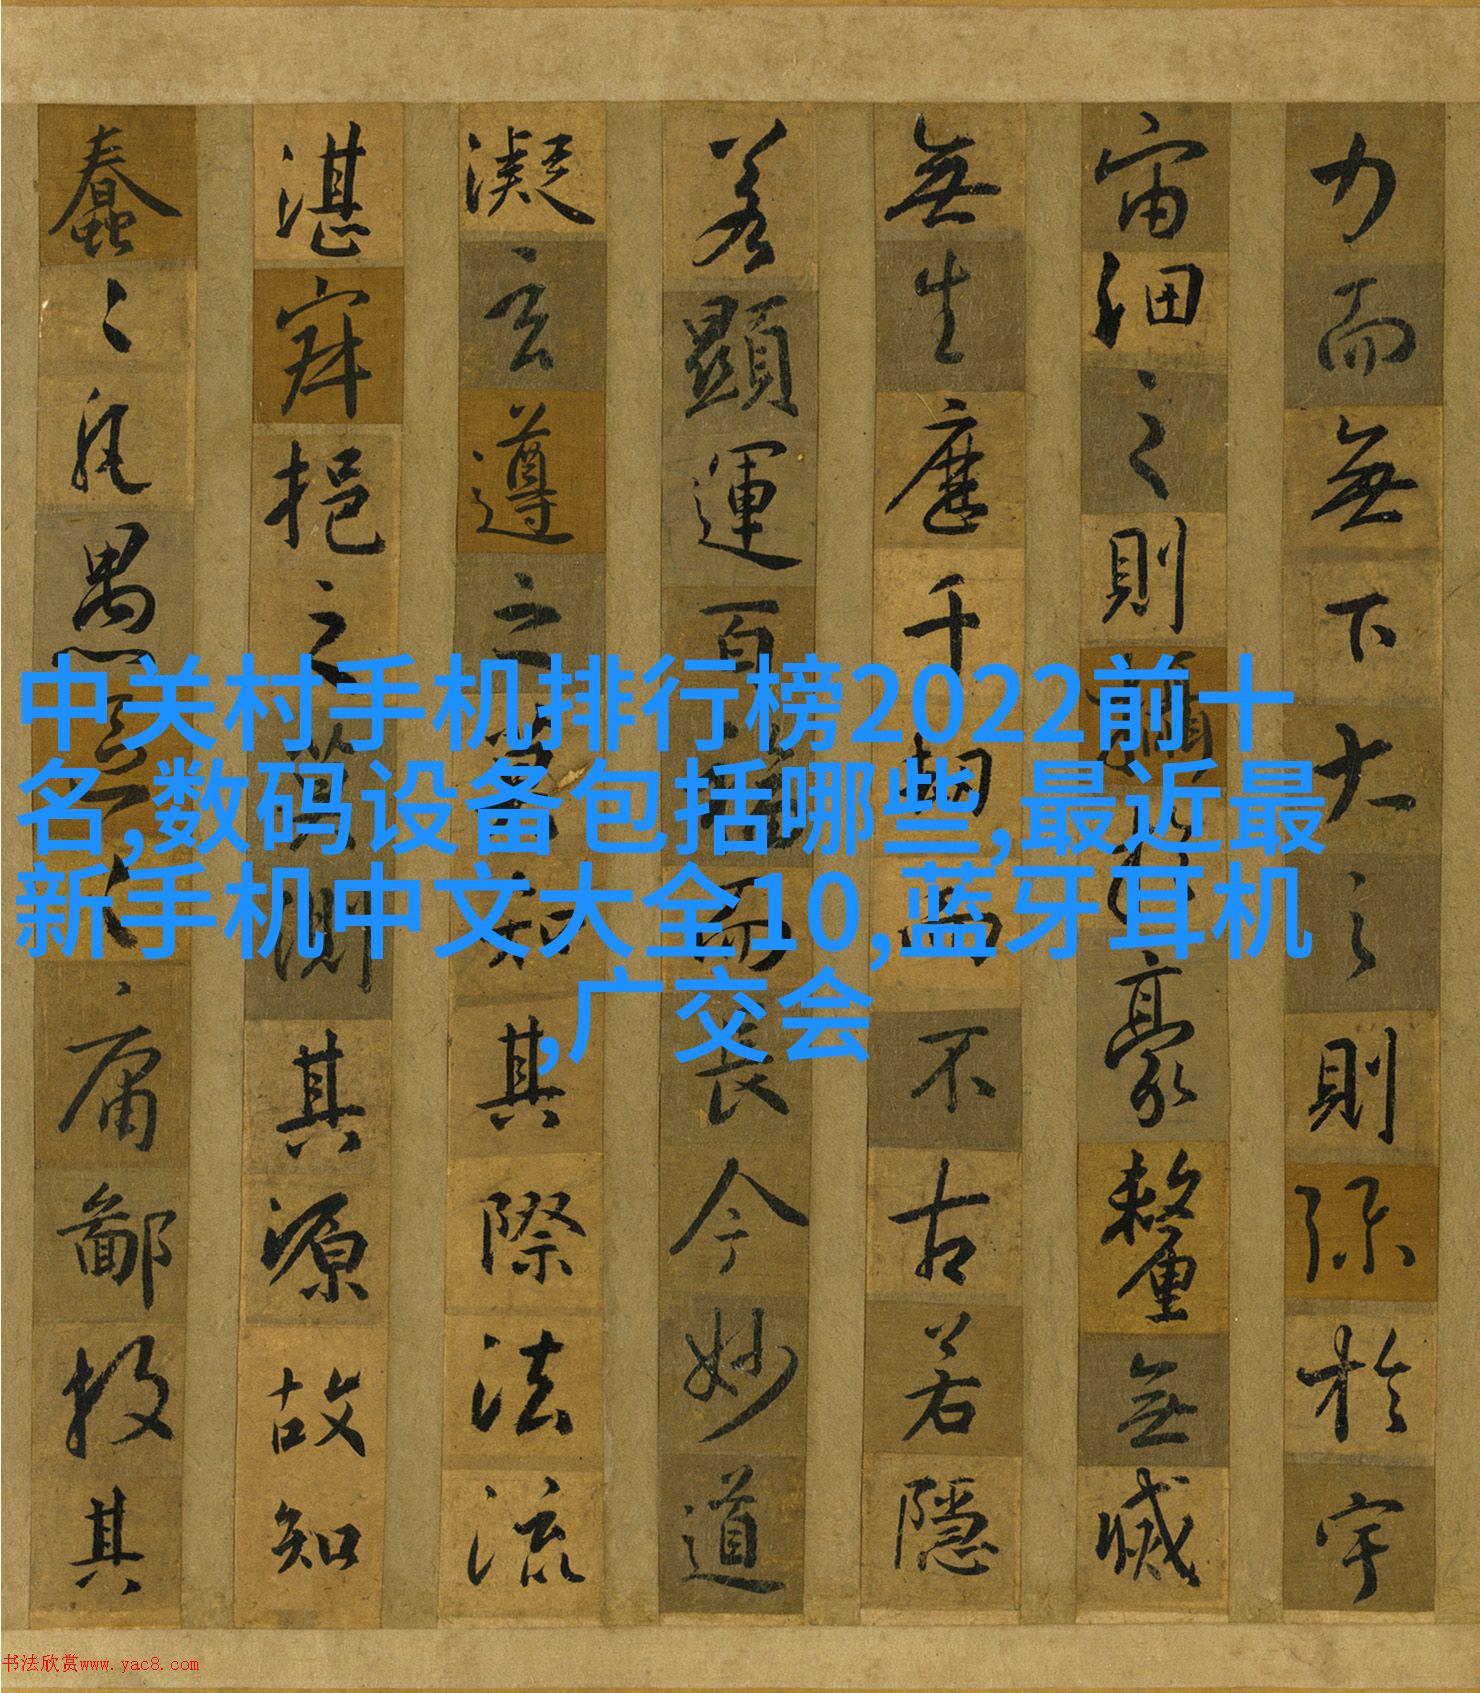 力而無下大之則弥於宇
宙細之則攝於豪釐無滅
無生歷千劫而不古若隱
若顯運百福而長今妙道
凝玄遵之莫知其際法流
湛寂挹之莫測其源故知
蠢々凡愚區々庸鄙投其
中关村手机排行榜2022前十
名,数码设备包括哪些,最近最
新手机中文大全10,蓝牙耳机
,广交会
书法欣赏www.yac8.com